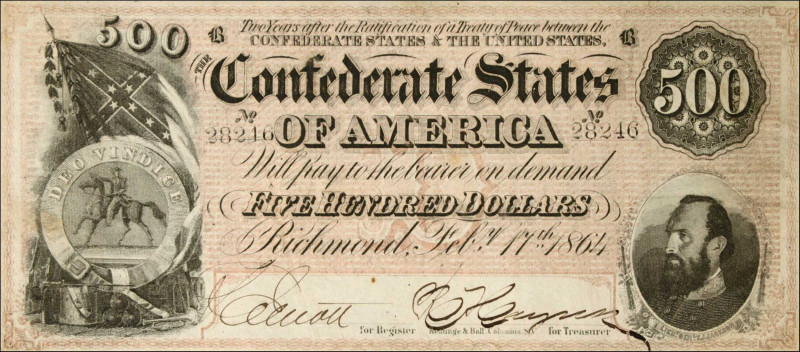 Two Years after the Ratification of a Treaty of Peace between the
500 B CONFEDERATE STATES & THE UNITED STATES, B
THE
Confederate States 500
No 28246 OF AMERICA No 28246
DEO VINDICE
Will pay to the bearer on demand
FIVE HUNDRED DOLLARS
Richmond, Feby. 17th 1864
for Register Keatinge & Ball, Columbia, S.C. for Treasurer